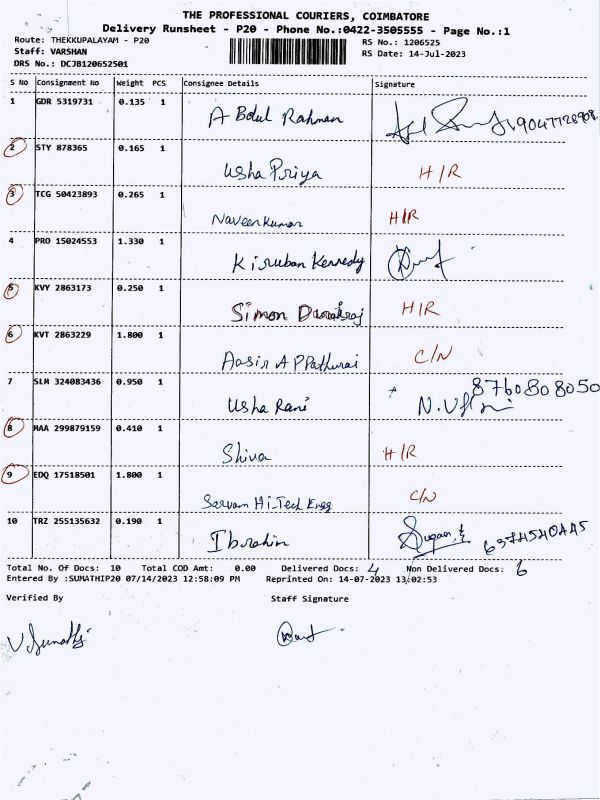 THE PROFESSIONAL COURIERS, COIMBATORE
Delivery Runsheet - P20 - Phone No.:0422-3505555 - Page No.:1
Route: THEKKUPALAYAM - P20 RS No.: 1206525
Staff: VARSHAN RS Date: 14-Jul-2023
DRS No.: DCJB120652501
S No Consignment No Weight PCS Consignee Details Signature
1 GDR 5319731 0.135 1
A Bdul Rahman
2 STY 878365 0.165 1
Usha Priya H/R
3 TCG 50423893 0.265 1
Naveen Kumar H/R
4 PRO 15024553 1.330 1
Kiruban Kennedy
5 KVY 2863173 0.250 1
Simon H/R
6 KVT 2863229 1.800 1
C/N
7 SLM 324083436 0.950 1 8760808050
Usha Rani
8 MAA 299879159 0.410 1
Shiva H/R
9 EDQ 17518501 1.800 1
Sarvam Hi-Tech Engg C/N
10 TRZ 255135632 0.190 1
Ibrahim 6374540445
Total No. Of Docs: 10 Total COD Amt: 0.00 Delivered Docs: 4 Non Delivered Docs: 6
Entered By :SUMATHIP20 07/14/2023 12:58:09 PM Reprinted On: 14-07-2023 13:02:53
Verified By Staff Signature
V Sumathi